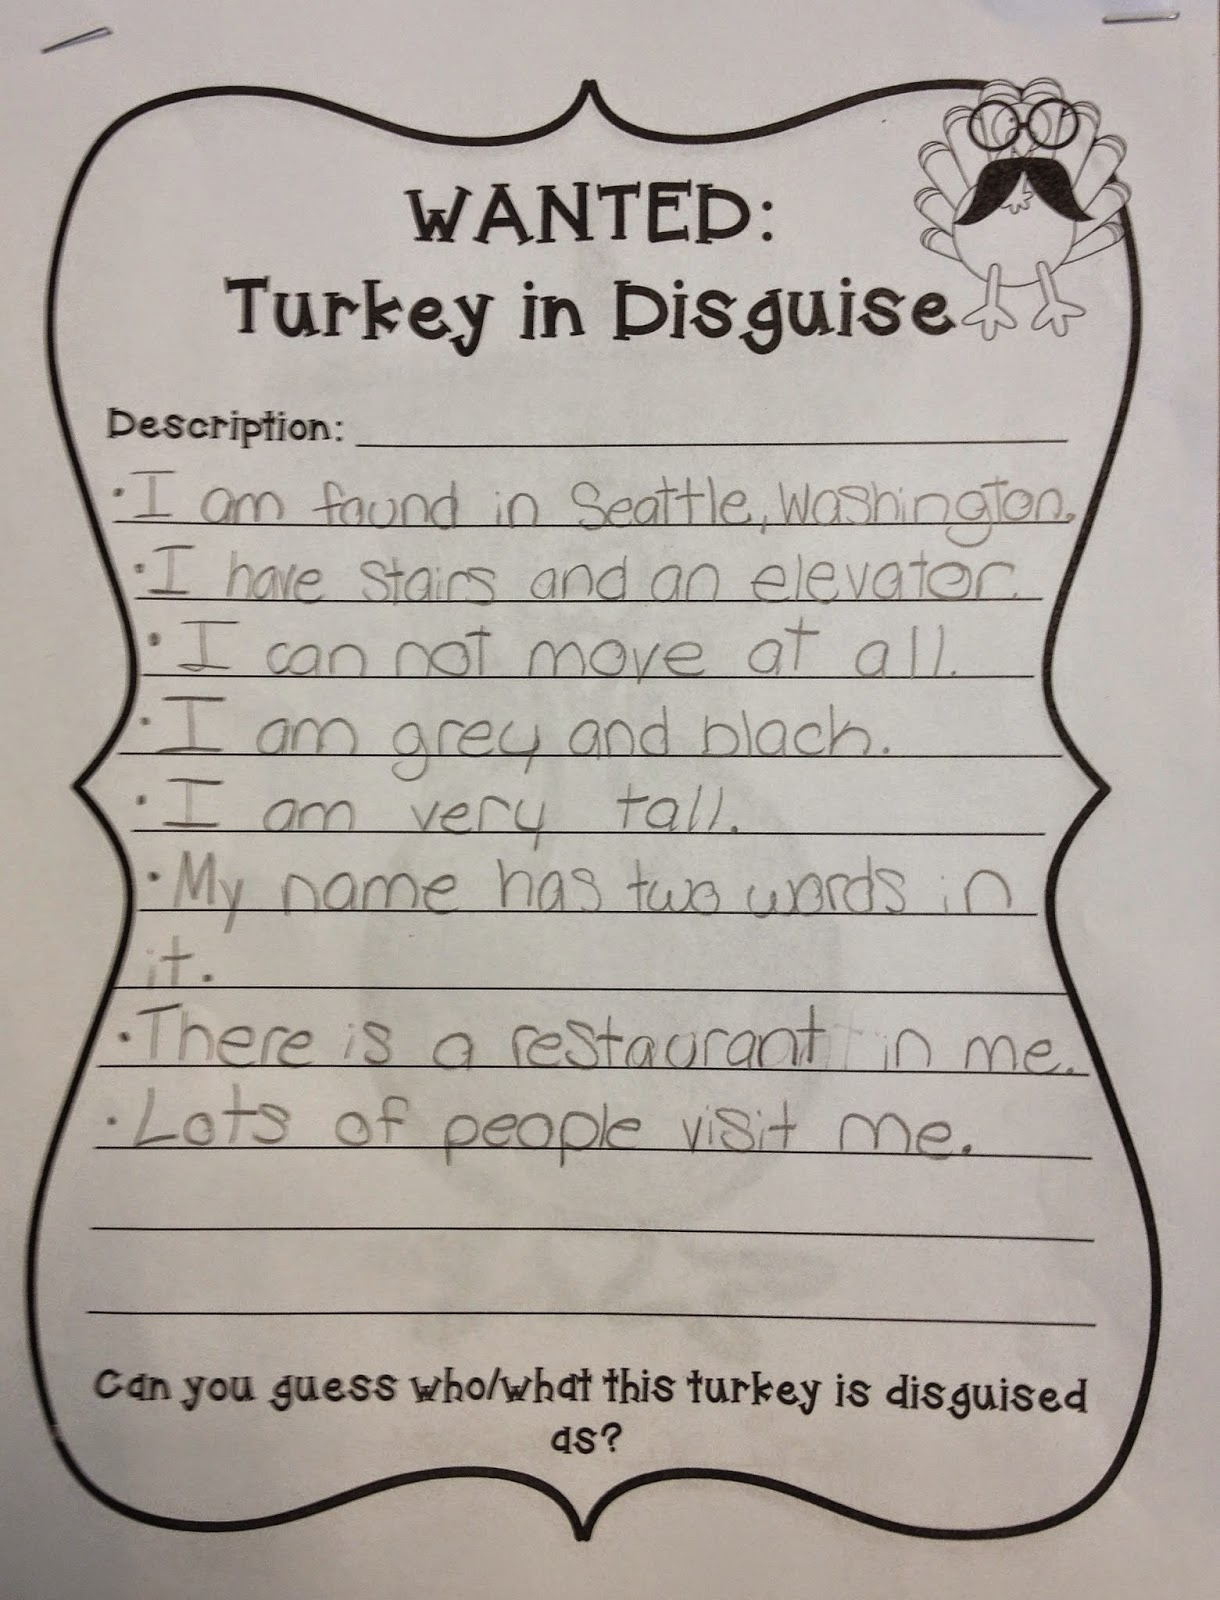 WANTED:
Turkey in Disguise
Description:
·I am found in Seattle, Washington.
·I have stairs and an elevator.
·I can not move at all.
·I am grey and black.
·I am very tall.
·My name has two words in
it.
·There is a restaurant in me.
·Lots of people visit me.
Can you guess who/what this turkey is disguised
as?